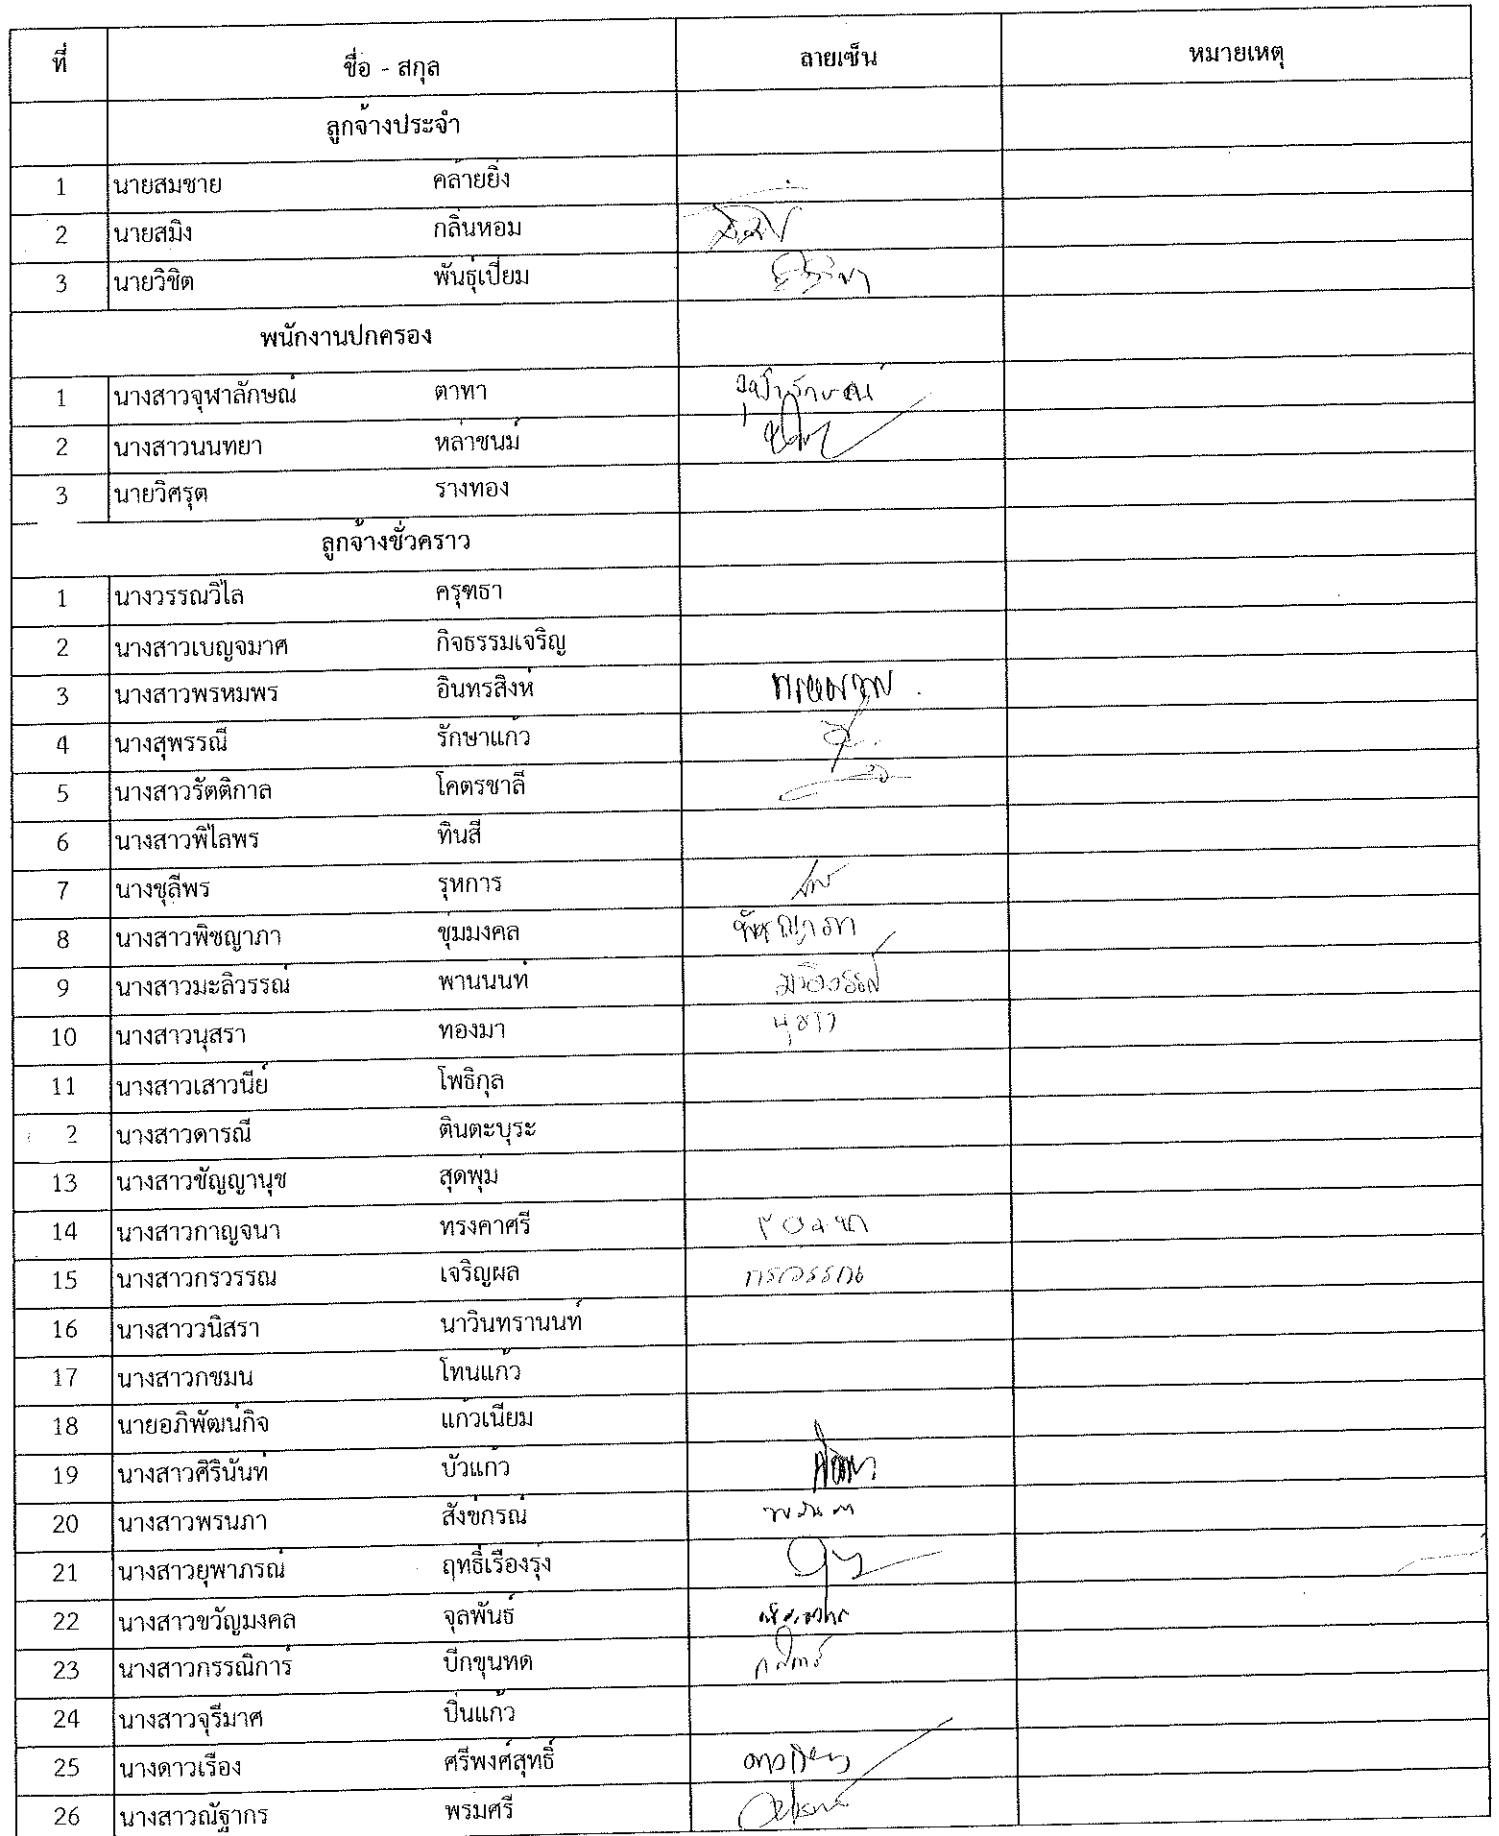 ที่ ชื่อ - สกุล ลายเซ็น หมายเหตุ
ลูกจ้างประจำ
1 นายสมชาย คล้ายยิ่ง
2 นายสมิง กลิ่นหอม
3 นายวิชิต พันธุ์เปี่ยม
พนักงานปกครอง
1 นางสาวจุฬาลักษณ์ ตาทา จุฬาลักษณ์
2 นางสาวนนทยา หล่าชนม์
3 นายวิศรุต รางทอง
ลูกจ้างชั่วคราว
1 นางวรรณวิไล ครุฑธา
2 นางสาวเบญจมาศ กิจธรรมเจริญ
3 นางสาวพรหมพร อินทรสิงห์
4 นางสุพรรณี รักษาแก้ว
5 นางสาวรัตติกาล โคตรชาลี
6 นางสาวพิไลพร ทินสี
7 นางชุลีพร รุหการ
8 นางสาวพิชญาภา ขุ่มมงคล พิชญาภา
9 นางสาวมะลิวรรณ์ พานนนท์ มะลิวรรณ์
10 นางสาวนุสรา ทองมา นุสรา
11 นางสาวเสาวนีย์ โพธิกุล
2 นางสาวดารณี ตินตะบุระ
13 นางสาวชัญญานุช สุดพุ่ม
14 นางสาวกาญจนา ทรงคาศรี
15 นางสาวกรวรรณ เจริญผล กรวรรณ
16 นางสาววนิสรา นาวินทรานนท์
17 นางสาวกชมน โทนแก้ว
18 นายอภิพัฒน์กิจ แก้วเนียม
19 นางสาวศิรินันท์ บัวแก้ว
20 นางสาวพรนภา สังข์กรณ์ พรนภา
21 นางสาวยุพาภรณ์ ฤทธิ์เรืองรุ่ง
22 นางสาวขวัญมงคล จุลพันธ์
23 นางสาวกรรณิการ์ บีกขุนทด
24 นางสาวจุรีมาศ ปิ่นแก้ว
25 นางดาวเรือง ศรีพงศ์สุทธิ์
26 นางสาวณัฐากร พรมศรี